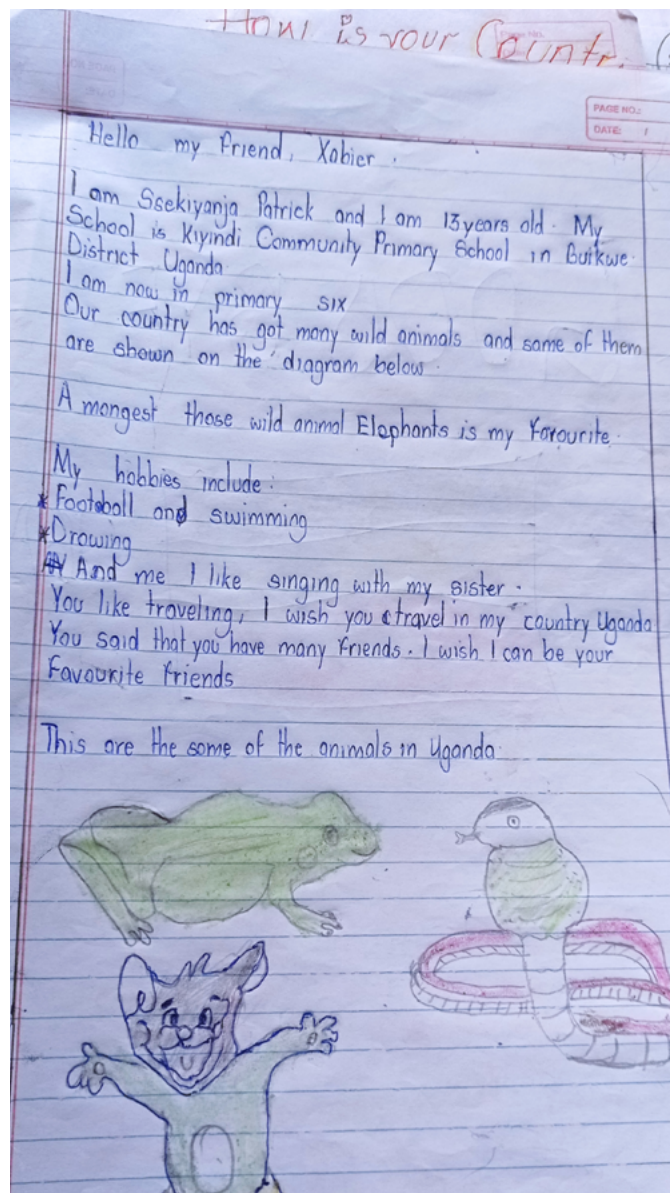 How is your Countr
PAGE NO.:
DATE: /
Hello my friend, Xabier.
I am Ssekiyanja Patrick and I am 13 years old. My
School is Kiyindi Community Primary School in Buikwe
District Uganda
I am now in primary six
Our country has got many wild animals and some of them
are shown on the diagram below.
A mongest those wild animal Elephants is my Favourite.
My hobbies include:
* Football and swimming
* Drawing
And me I like singing with my sister.
You like traveling, I wish you travel in my country Uganda
You said that you have many friends. I wish I can be your
Favourite friends
This are the some of the animals in Uganda